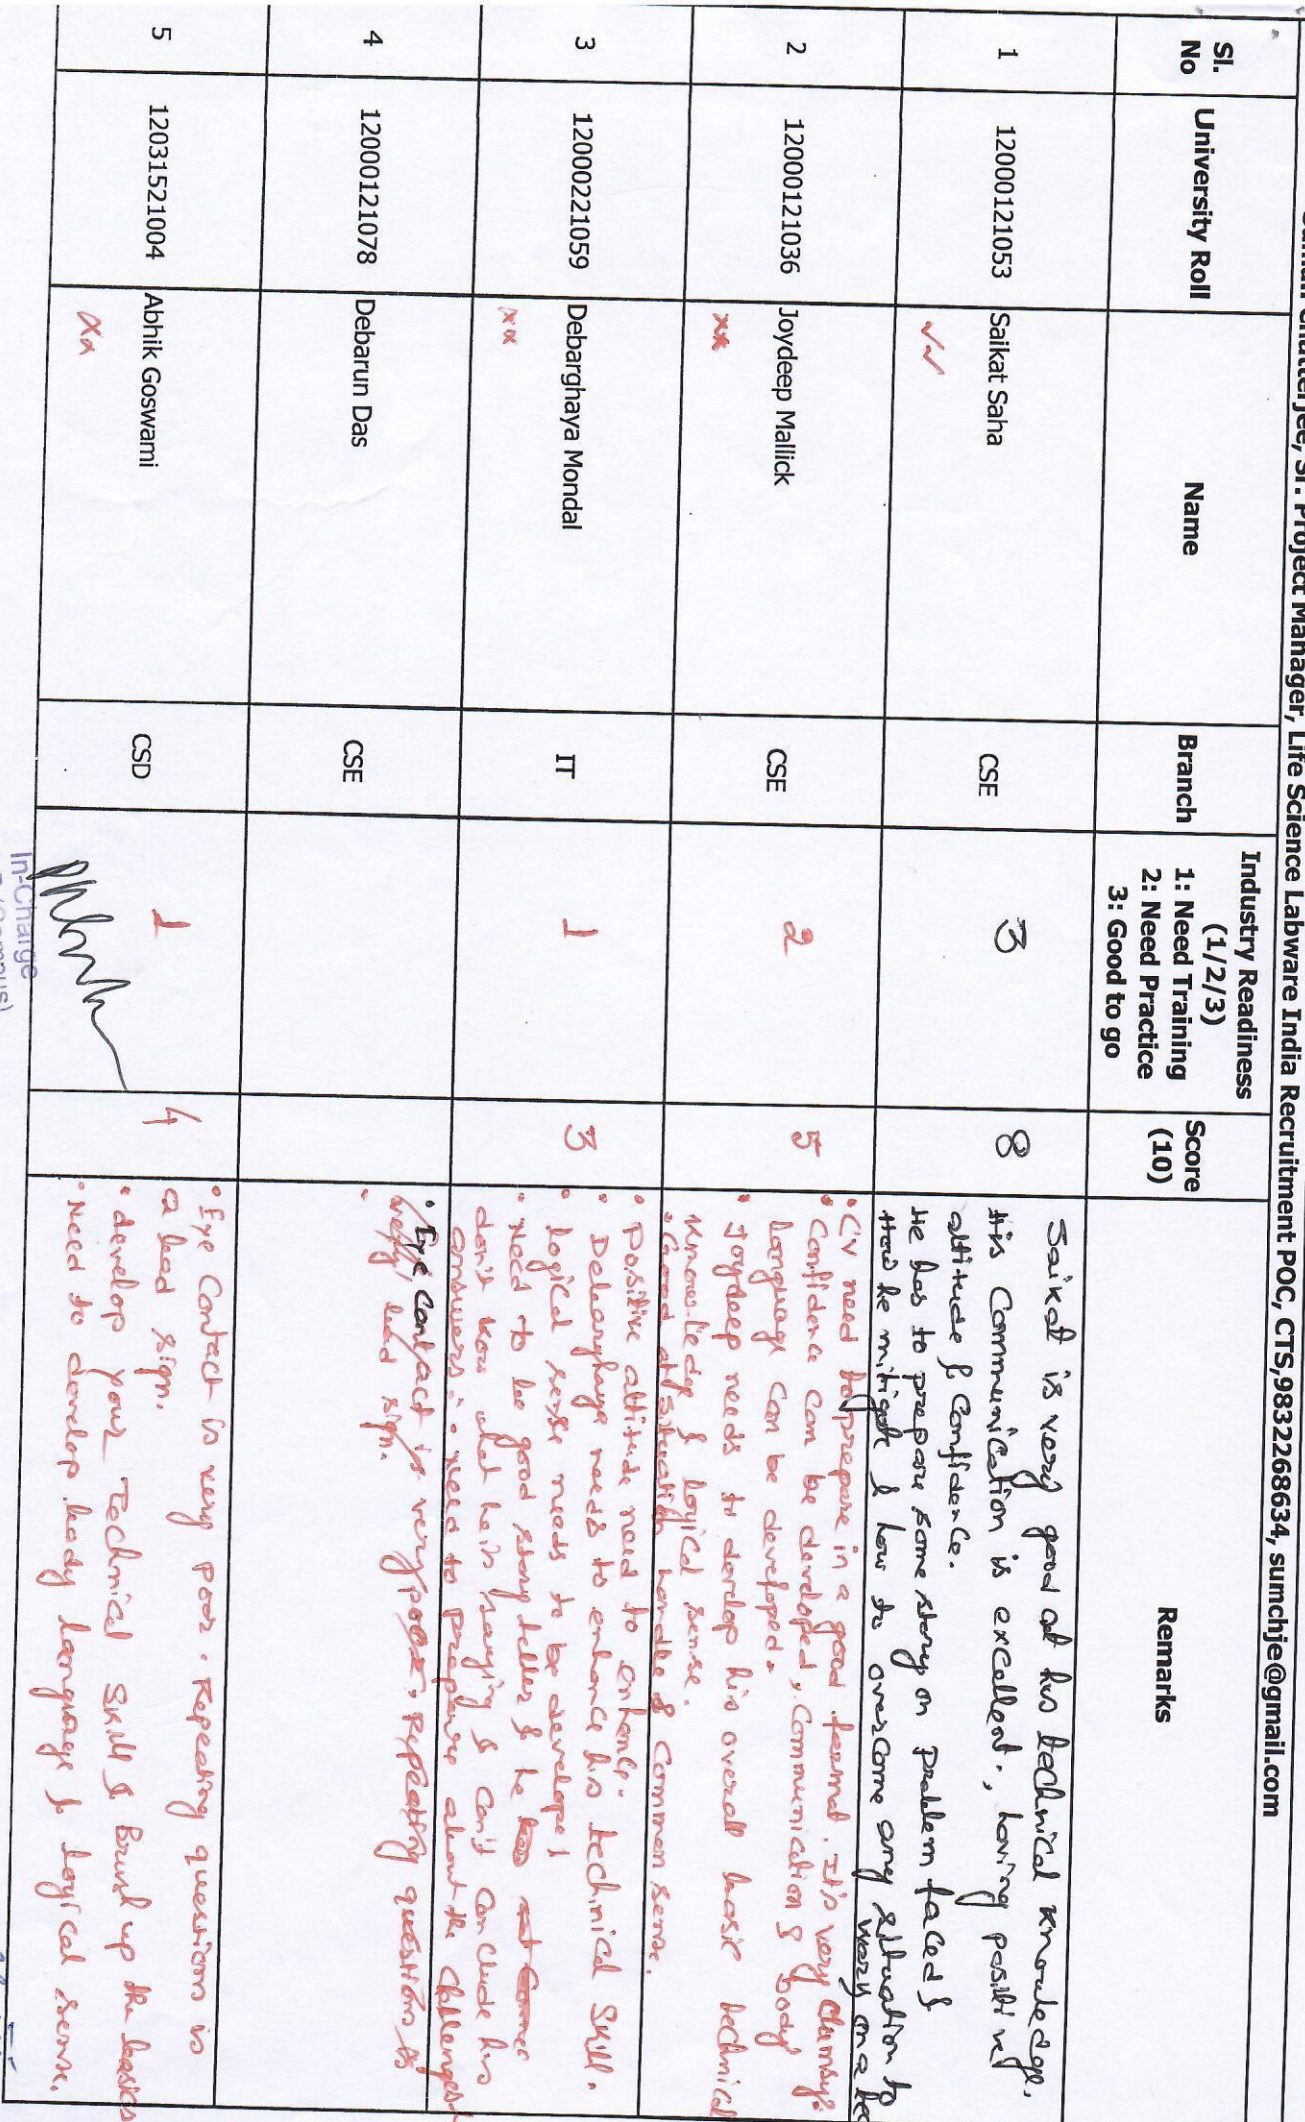 Chatterjee, Sr. Project Manager, Life Science Labware India Recruitment POC, CTS,9832268634, sumchje@gmail.com
Sl. No
University Roll
Name
Branch
Industry Readiness
(1/2/3)
1: Need Training
2: Need Practice
3: Good to go
Score
(10)
Remarks
1
12000121053
Saikat Saha
CSE
3
8
Saikat is very good at his technical knowledge.
His communication is excellent, having positive
attitude & confidence.
He has to prepare some story on problem faced &
How he mitigate & how to overcome any situation to
work on a
2
12000121036
Joydeep Mallick
CSE
2
5
• CV need to prepare in a good format. It's very clumsy.
• Confidence can be developed, Communication & body
language can be developed.
• Joydeep needs to develop his overall basic technical
knowledge & logical sense.
• Good at situation handle & common sense.
3
12000221059
Debarghaya Mondal
IT
1
3
• Positive attitude need to enhance.
• Debarghaya needs to enhance his technical skill.
• Logical sense needs to be developed
• Need to be good story teller & he
don't know what he is saying & can't conclude his
answers. • need to prepare about the challenges
• Eye contact is very poor, repeating questions is
bad sign.
4
12000121078
Debarun Das
CSE
5
12031521004
Abhik Goswami
CSD
1
4
• Eye Contact is very poor. Repeating question is
a bad sign.
• develop your Technical Skill & Brush up the basics
• Need to develop body language & logical sense.
In-Charge